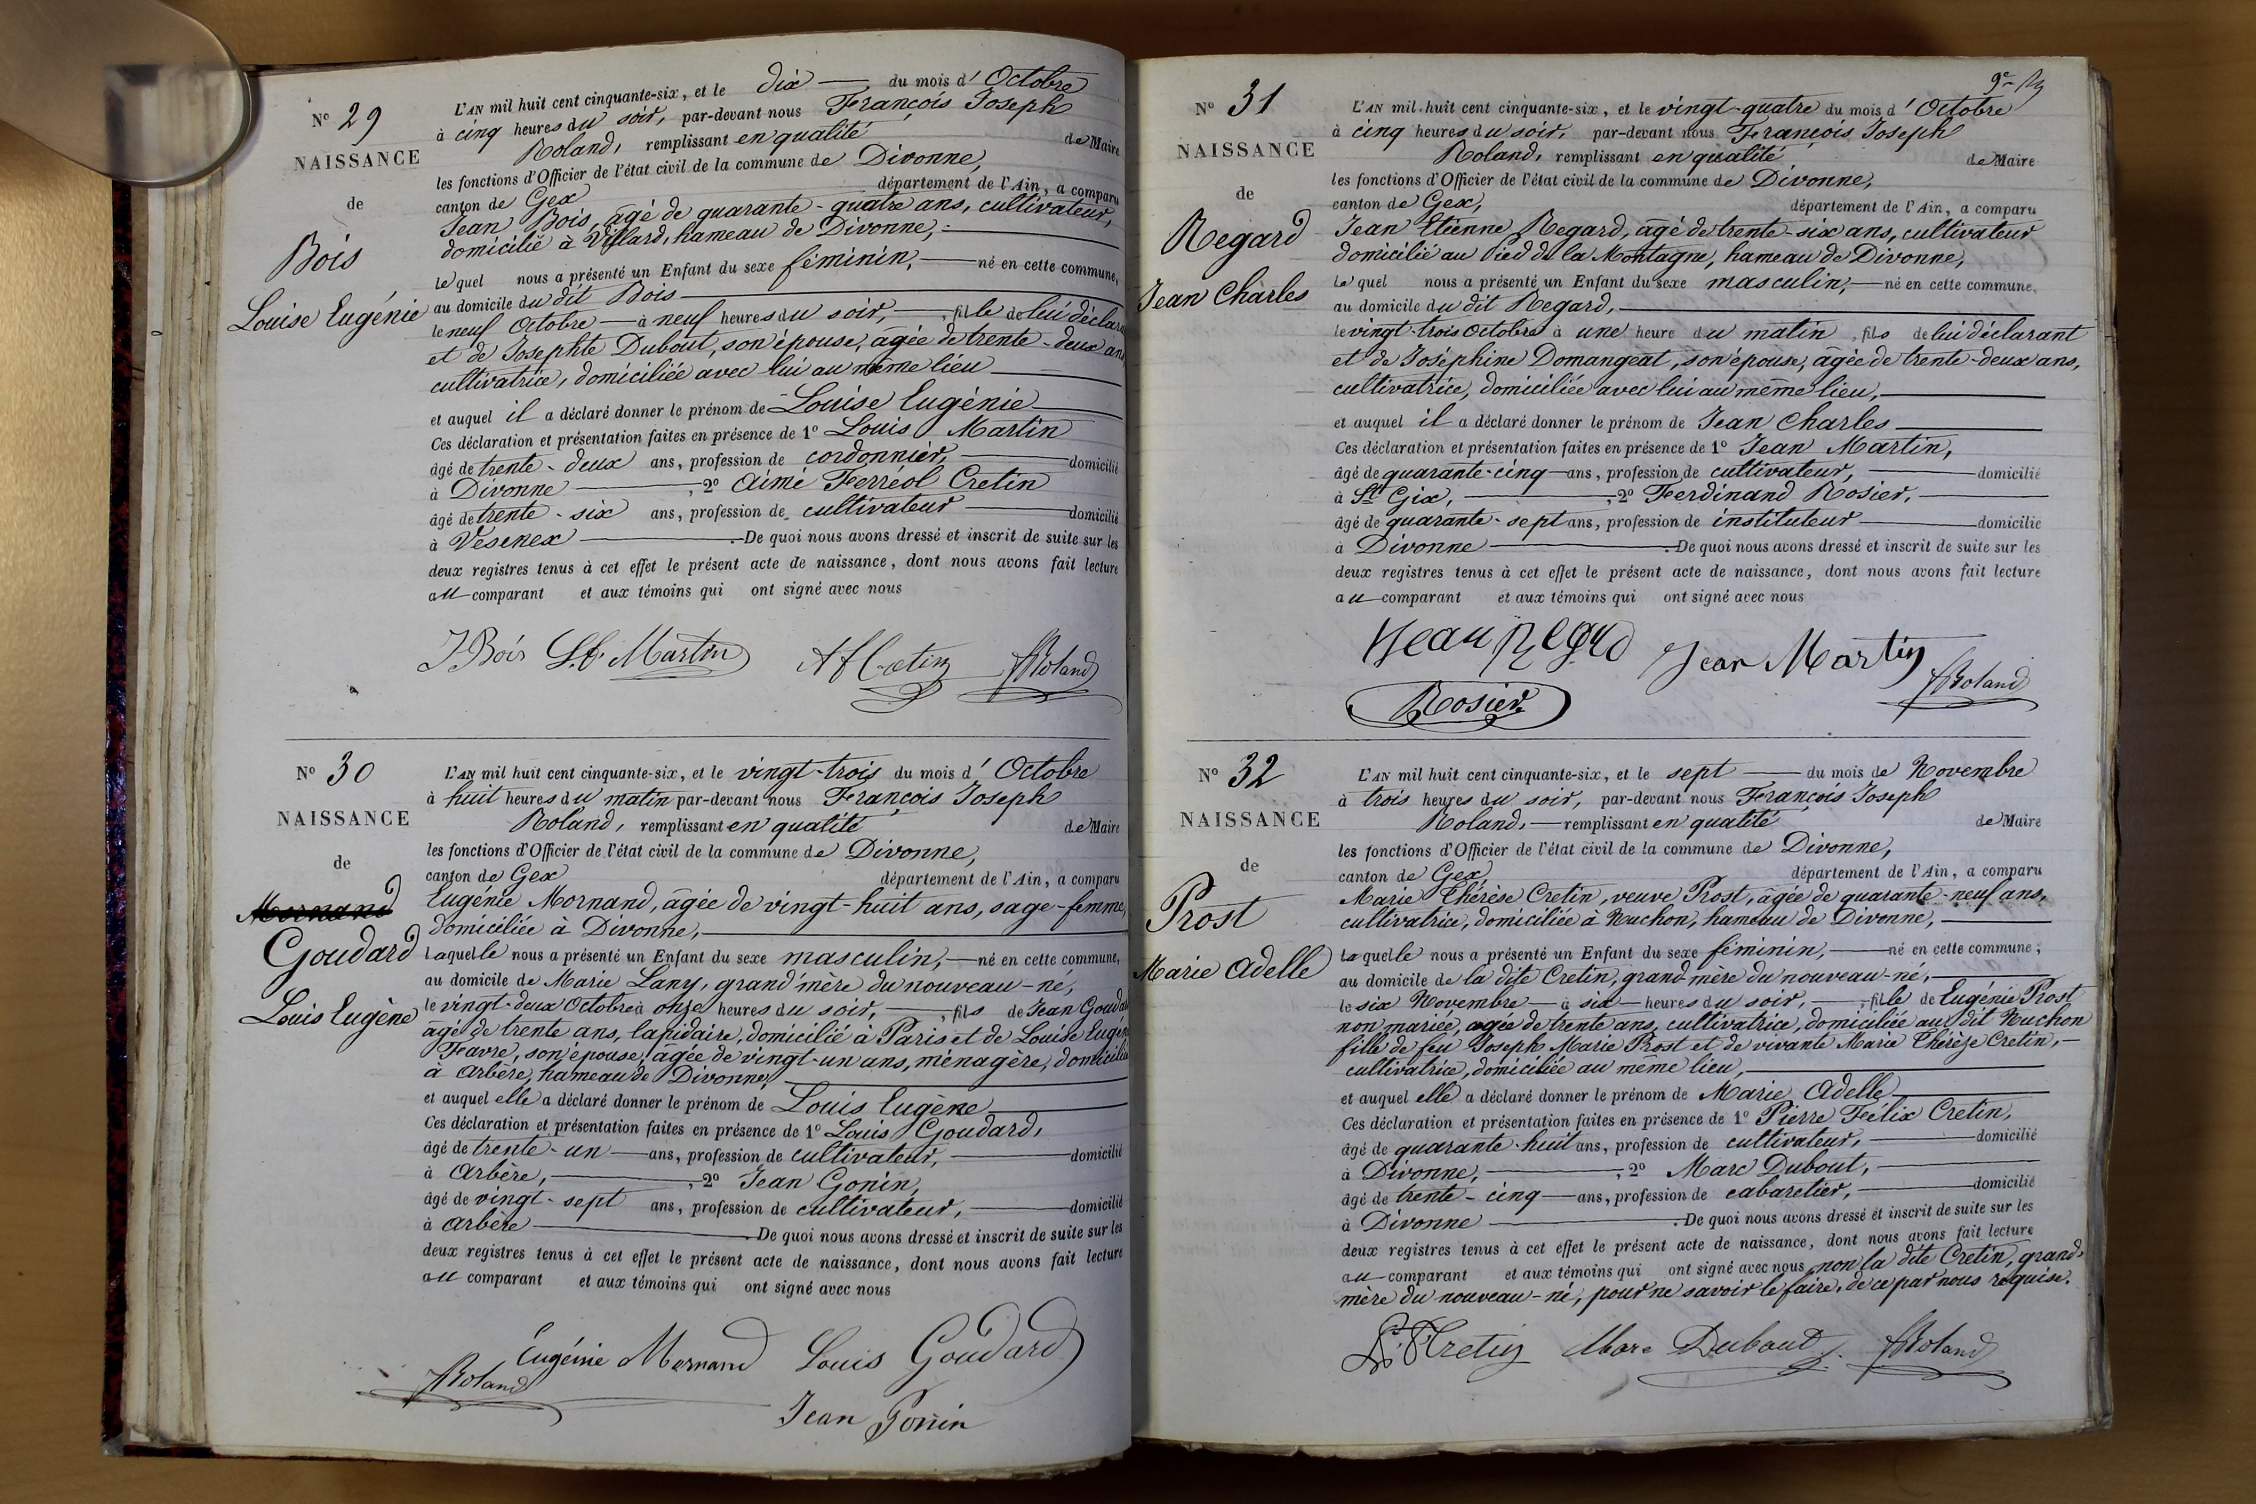 N° 29
NAISSANCE
de
Bois
Louise Eugénie
L'AN mil huit cent cinquante-six, et le dix du mois d'Octobre
à cinq heures du soir, par-devant nous François Joseph
Roland, remplissant en qualité de Maire
les fonctions d'Officier de l'état civil de la commune de Divonne,
canton de Gex département de l'Ain, a comparu
Jean Bois, âgé de quarante-quatre ans, cultivateur,
domicilié à Villard, hameau de Divonne,
lequel nous a présenté un Enfant du sexe féminin, né en cette commune,
au domicile du dit Bois
le neuf Octobre à neuf heures du soir, fille de lui déclara
et de Josephte Dubout, son épouse, âgée de trente-deux ans
cultivatrice, domiciliée avec lui au même lieu
et auquel il a déclaré donner le prénom de Louise Eugénie
Ces déclaration et présentation faites en présence de 1° Louis Martin
âgé de trente-deux ans, profession de cordonnier, domicilié
à Divonne, 2° Aimé Ferréol Cretin
âgé de trente-six ans, profession de cultivateur domicilié
à Vesenex. De quoi nous avons dressé et inscrit de suite sur les
deux registres tenus à cet effet le présent acte de naissance, dont nous avons fait lecture
au comparant et aux témoins qui ont signé avec nous
J Bois Martin A f Cretin Roland
N° 30
NAISSANCE
de
Mornand
Goudard
Louis Eugène
L'AN mil huit cent cinquante-six, et le vingt-trois du mois d'Octobre
à huit heures du matin par-devant nous François Joseph
Roland, remplissant en qualité de Maire
les fonctions d'Officier de l'état civil de la commune de Divonne,
canton de Gex département de l'Ain, a comparu
Eugénie Mornand, âgée de vingt-huit ans, sage-femme,
domiciliée à Divonne,
laquelle nous a présenté un Enfant du sexe masculin, né en cette commune,
au domicile de Marie Lany, grand'mère du nouveau-né,
le vingt-deux Octobre à onze heures du soir, fils de Jean Goudar
âgé de trente ans, lapidaire, domicilié à Paris et de Louise Eugén
Favre, son épouse, âgée de vingt-un ans, ménagère, domiciliée
à Arbère, hameau de Divonne,
et auquel elle a déclaré donner le prénom de Louis Eugène
Ces déclaration et présentation faites en présence de 1° Louis Goudard,
âgé de trente-un ans, profession de cultivateur, domicilié
à Arbère, 2° Jean Gonin,
âgé de vingt-sept ans, profession de cultivateur, domicilié
à Arbère. De quoi nous avons dressé et inscrit de suite sur les
deux registres tenus à cet effet le présent acte de naissance, dont nous avons fait lecture
au comparant et aux témoins qui ont signé avec nous
Eugénie Mornand Louis Goudard
Roland
Jean Gonin
N° 31
NAISSANCE
de
Regard
Jean Charles
L'AN mil huit cent cinquante-six, et le vingt-quatre du mois d'Octobre
à cinq heures du soir, par-devant nous François Joseph
Roland, remplissant en qualité de Maire
les fonctions d'Officier de l'état civil de la commune de Divonne,
canton de Gex, département de l'Ain, a comparu
Jean Etienne Regard, âgé de trente-six ans, cultivateur
domicilié au Pied de la Montagne, hameau de Divonne,
lequel nous a présenté un Enfant du sexe masculin, né en cette commune,
au domicile du dit Regard,
le vingt-trois Octobre à une heure du matin, fils de lui déclarant
et de Joséphine Domangeat, son épouse, âgée de trente-deux ans,
cultivatrice, domiciliée avec lui au même lieu,
et auquel il a déclaré donner le prénom de Jean Charles
Ces déclaration et présentation faites en présence de 1° Jean Martin,
âgé de quarante-cinq ans, profession de cultivateur, domicilié
à St Gix, 2° Ferdinand Rosier,
âgé de quarante-sept ans, profession de instituteur domicilié
à Divonne. De quoi nous avons dressé et inscrit de suite sur les
deux registres tenus à cet effet le présent acte de naissance, dont nous avons fait lecture
au comparant et aux témoins qui ont signé avec nous
Jean Regard Jean Martin
Rosier Roland
N° 32
NAISSANCE
de
Prost
Marie Adelle
L'AN mil huit cent cinquante-six, et le sept du mois de Novembre
à trois heures du soir, par-devant nous François Joseph
Roland, remplissant en qualité de Maire
les fonctions d'Officier de l'état civil de la commune de Divonne,
canton de Gex, département de l'Ain, a comparu
Marie Thérèse Cretin, veuve Prost, âgée de quarante-neuf ans,
cultivatrice, domiciliée à Nuchon, hameau de Divonne,
laquelle nous a présenté un Enfant du sexe féminin, né en cette commune,
au domicile de la dite Cretin, grand-mère du nouveau-né,
le six Novembre à six heures du soir, fille de Eugénie Prost
non mariée, agée de trente ans, cultivatrice, domiciliée au dit Nuchon
fille de feu Joseph Marie Prost et de vivante Marie Thérèze Cretin,
cultivatrice, domiciliée au même lieu,
et auquel elle a déclaré donner le prénom de Marie Adelle
Ces déclaration et présentation faites en présence de 1° Pierre Félix Cretin,
âgé de quarante-huit ans, profession de cultivateur, domicilié
à Divonne, 2° Marc Dubout,
âgé de trente-cinq ans, profession de cabaretier, domicilié
à Divonne. De quoi nous avons dressé et inscrit de suite sur les
deux registres tenus à cet effet le présent acte de naissance, dont nous avons fait lecture
au comparant et aux témoins qui ont signé avec nous non la dite Cretin, grand-
mère du nouveau-né, pour ne savoir le faire, de ce par nous requise.
Cretin Marc Dubout Roland